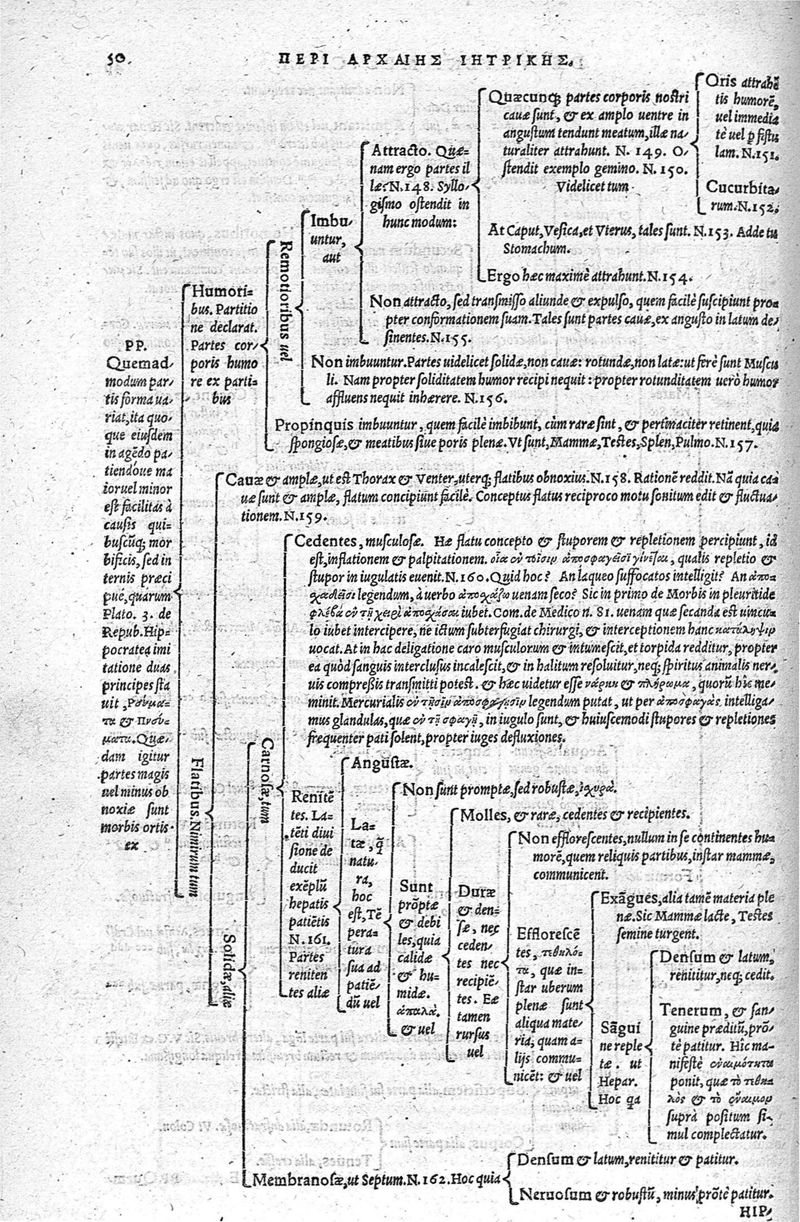 50.
ΠΕΡΙ ΑΡΧΑΙΗΣ ΙΗΤΡΙΚΗΣ.
PP.
Quemad-
modum par-
tis forma ua-
riat, ita quo-
que eiusdem
in agēdo pa-
tiendoue ma
ior uel minor
est facilitas à
causis qui-
buscūq; mor
bificis, sed in
ternis præci
puè, quarum
Plato. 3. de
Repub. Hip-
pocratea imi
tatione duas
principes sta
uit, Ρεύμα-
τα & Πνεύ-
ματα. Quæ-
dam igitur
partes magis
uel minus ob
noxiæ sunt
morbis ortis
ex
Humori-
bus. Partitio
ne declarat.
Partes cor-
poris humo
re ex parti-
bus
Remotioribus uel
Imbu-
untur,
aut
Attracto. Quæ-
nam ergo partes il
læ? N. 148. Syllo-
gismo ostendit in
hunc modum:
Quæcunq; partes corporis nostri
cauæ sunt, & ex amplo uentre in
angustum tendunt meatum, illæ na-
turaliter attrahunt. N. 149. O-
stendit exemplo gemino. N. 150.
Videlicet tum
Oris attrahē
tis humorē,
uel immedia
tè uel p fistu
lam. N. 151.
Cucurbita-
rum. N. 152.
At Caput, Vesica, et Vterus, tales sunt. N. 153. Adde tu
Stomachum.
Ergo hæc maximè attrahunt. N. 154.
Non attracto, sed transmisso aliunde & expulso, quem facilè suscipiunt pro
pter conformationem suam. Tales sunt partes cauæ, ex angusto in latum de-
sinentes. N. 155.
Non imbuuntur. Partes uidelicet solidæ, non cauæ: rotundæ, non latæ: ut ferè sunt Muscu
li. Nam propter soliditatem humor recipi nequit: propter rotunditatem uerò humor
affluens nequit inhærere. N. 156.
Propinquis imbuuntur, quem facilè imbibunt, cùm raræ sint, & pertinaciter retinent, quia
spongiosæ, & meatibus siue poris plenæ. Vt sunt, Mammæ, Testes, Splen, Pulmo. N. 157.
Flatibus. Nimirum tum
Cauæ & amplæ, ut est Thorax & Venter, uterq; flatibus obnoxius. N. 158. Rationē reddit. Nā quia ca-
uæ sunt & amplæ, flatum concipiunt facilè. Conceptus flatus reciproco motu sonitum edit & fluctua-
tionem. N. 159.
Solidæ, aliæ
Carnosæ, tum
Cedentes, musculosæ. Hæ flatu concepto & stuporem & repletionem percipiunt, id
est, inflationem & palpitationem. οἷα οὖν τοῖσιν ἀποσφαγεῖσι γίνεται, qualis repletio &
stupor in iugulatis euenit. N. 160. Quid hoc? An laqueo suffocatos intelligit? An ἀπο-
σχασθεῖσι legendum, à uerbo ἀποσχάζω uenam seco? Sic in primo de Morbis in pleuritide
φλέβα οὖν τῇ χειρὶ ἀποσχάσαι iubet. Com. de Medico n. 81. uenam quæ secanda est uincu-
lo iubet intercipere, ne ictum subterfugiat chirurgi, & interceptionem hanc κατάληψιν
uocat. At in hac deligatione caro musculorum & intumescit, et torpida redditur, propter
ea quòd sanguis interclusus incalescit, & in halitum resoluitur, neq; spiritus animalis ner-
uis compressis transmitti potest. & hæc uidetur esse νάρκη & πλήρωμα, quorū hîc me-
minit. Mercurialis οὖν τῇσιν ἀποσφαγῇσιν legendum putat, ut per ἀποσφαγὰς intelliga-
mus glandulas, quæ οὖν τῇ σφαγῇ, in iugulo sunt, & huiuscemodi stupores & repletiones
frequenter pati solent, propter iuges defluxiones.
Renitē
tes. La-
tēti diui
sione de
ducit
exēplū
hepatis
patiētis
N. 161.
Partes
reniten
tes aliæ
Angustæ.
La-
tæ, q̃
natu-
ra,
hoc
est, Tē
pera-
tura
sua ad
patiē-
dū uel
Non sunt promptæ, sed robustæ, ἰσχυρά.
Sunt
prōptæ
& debi
les, quia
calidæ
& hu-
midæ.
ἁπαλά.
& uel
Molles, & raræ, cedentes & recipientes.
Duræ
& den-
sæ, nec
ceden-
tes nec
recipiē-
tes. Eæ
tamen
rursus
uel
Non efflorescentes, nullum in se continentes hu-
morē, quem reliquis partibus, instar mammæ,
communicent.
Effloresce̅
tes, τεθηλό-
τα, quæ in-
star uberum
plenæ sunt
aliqua mate-
ria, quam a-
lijs commu-
nicēt: & uel
Exāgues, alia tamē materia ple
næ. Sic Mammæ lacte, Testes
semine turgent.
Sāgui
ne reple
tæ. ut
Hepar.
Hoc qa
Densum & latum,
renititur, neq; cedit.
Tenerum, & san-
guine præditū, prō-
tè patitur. Hic ma-
nifestè ἐναιμότητα
ponit, quæ τὸ τεθη-
λὸς & τὸ ἔναιμον
suprà positum si-
mul complectatur.
Membranosæ, ut Septum. N. 162. Hoc quia
Densum & latum, renititur & patitur.
Neruosum & robustū, minus prōtè patitur.
HIP-